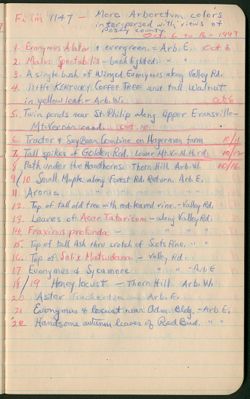 Film 1147 - More Arboretum colors
interspersed with views of
Posey County.
Oct. 6 to 16 - 1947
1. Evonymus Alatus & evergreen. - Arb. E. Oct 6
2. Malus Spectabilis - back lighted. "
3. A single bush of Winged Evonymus along Valley Rd.
4. Little Kentucky Coffee Tree and tall Walnut
in yellow leaf - Arb. W. Oct 6
5. Twin ponds near St. Philip along Upper Evansville -
Mt. Vernon road. Oct 10.
6. Tractor & Soy Bean Combine on Hagerman farm 10/12
7. Tall spikes of Golden Rod. Lower Mt. V.-N.H. rd 10/12
8. Path under the Hawthorns - Thorn Hill Arb. W. 10/16
9/10 Small Maple along Forest Rd. Return. Arb. E.
11. Aronia " "
12. Top of tall old tree with red-leaved vine. - Valley Rd.
13. Leaves of Acer Tataricum - along Valley Rd.
14. Fraxinus profunda - " "
15. Top of tall Ash thru crotch of Scots Pine. " "
16. Top of Salix Matsudana - Valley Rd.
17 Evonymus & Sycamore " " - Arb. E
18/19 Honey locust - Thorn Hill. Arb. W.
20. Aster - Arb. E.
21 Evonymus & locust near Adm. Bldg. - Arb. E
22 Handsome autumn leaves of Red Bud. " "